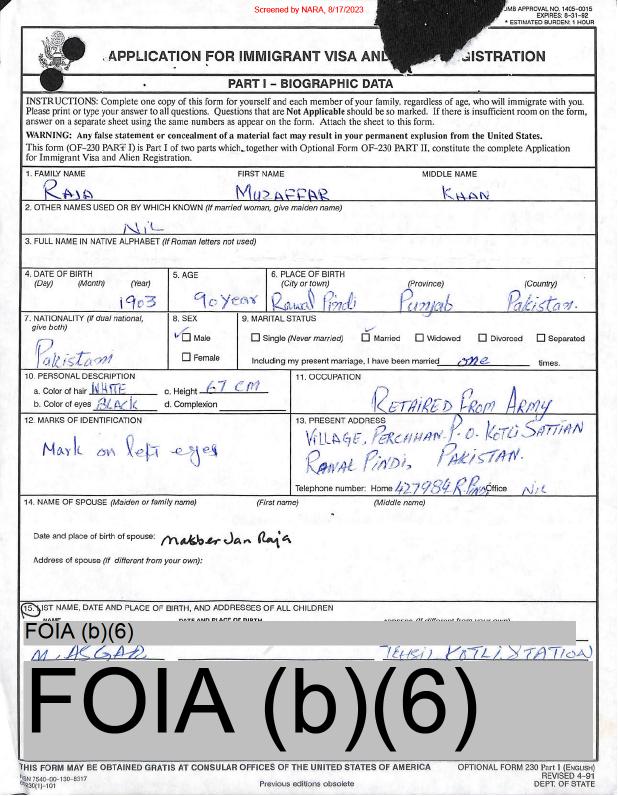 Screened by NARA, 8/17/2023
OMB APPROVAL NO. 1405-0015
EXPIRES: 8-31-92
* ESTIMATED BURDEN: 1 HOUR
APPLICATION FOR IMMIGRANT VISA AND
PART I – BIOGRAPHIC DATA
INSTRUCTIONS: Complete one copy of this form for yourself and each member of your family, regardless of age, who will immigrate with you. Please print or type your answer to all questions. Questions that are Not Applicable should be so marked. If there is insufficient room on the form, answer on a separate sheet using the same numbers as appear on the form. Attach the sheet to this form.
WARNING: Any false statement or concealment of a material fact may result in your permanent explusion from the United States.
This form (OF-230 PART I) is Part I of two parts which, together with Optional Form OF-230 PART II, constitute the complete Application for Immigrant Visa and Alien Registration.
1. FAMILY NAME FIRST NAME MIDDLE NAME
RAJA MUZAFFAR KHAN
2. OTHER NAMES USED OR BY WHICH KNOWN (If married woman, give maiden name)
NiL
3. FULL NAME IN NATIVE ALPHABET (If Roman letters not used)
4. DATE OF BIRTH 5. AGE 6. PLACE OF BIRTH
(Day) (Month) (Year) (City or town) (Province) (Country)
1903 90 year Rawal Pindi Punjab Pakistan.
7. NATIONALITY (If dual national, give both) 8. SEX 9. MARITAL STATUS
Male Single (Never married) Married Widowed Divorced Separated
Pakistani Female Including my present marriage, I have been married one times.
10. PERSONAL DESCRIPTION 11. OCCUPATION
a. Color of hair WHITE c. Height 67 CM
b. Color of eyes BLACK d. Complexion RETAIRED FROM ARMY
12. MARKS OF IDENTIFICATION 13. PRESENT ADDRESS
Mark on left eyes VILLAGE, PERCHHAN P.O. KOTLI SATTIAN
RAWAL PINDI, PAKISTAN.
Telephone number: Home 427984 R.Pindi Office NiL
14. NAME OF SPOUSE (Maiden or family name) (First name) (Middle name)
Date and place of birth of spouse: Makber Jan Raja
Address of spouse (If different from your own):
15. LIST NAME, DATE AND PLACE OF BIRTH, AND ADDRESSES OF ALL CHILDREN
NAME DATE AND PLACE OF BIRTH ADDRESS (If different from your own)
FOIA (b)(6)
M. ASGAR
FOIA (b)(6)
THIS FORM MAY BE OBTAINED GRATIS AT CONSULAR OFFICES OF THE UNITED STATES OF AMERICA OPTIONAL FORM 230 Part I (ENGLISH)
REVISED 4-91
NSN 7540-00-130-8317 DEPT. OF STATE
Previous editions obsolete